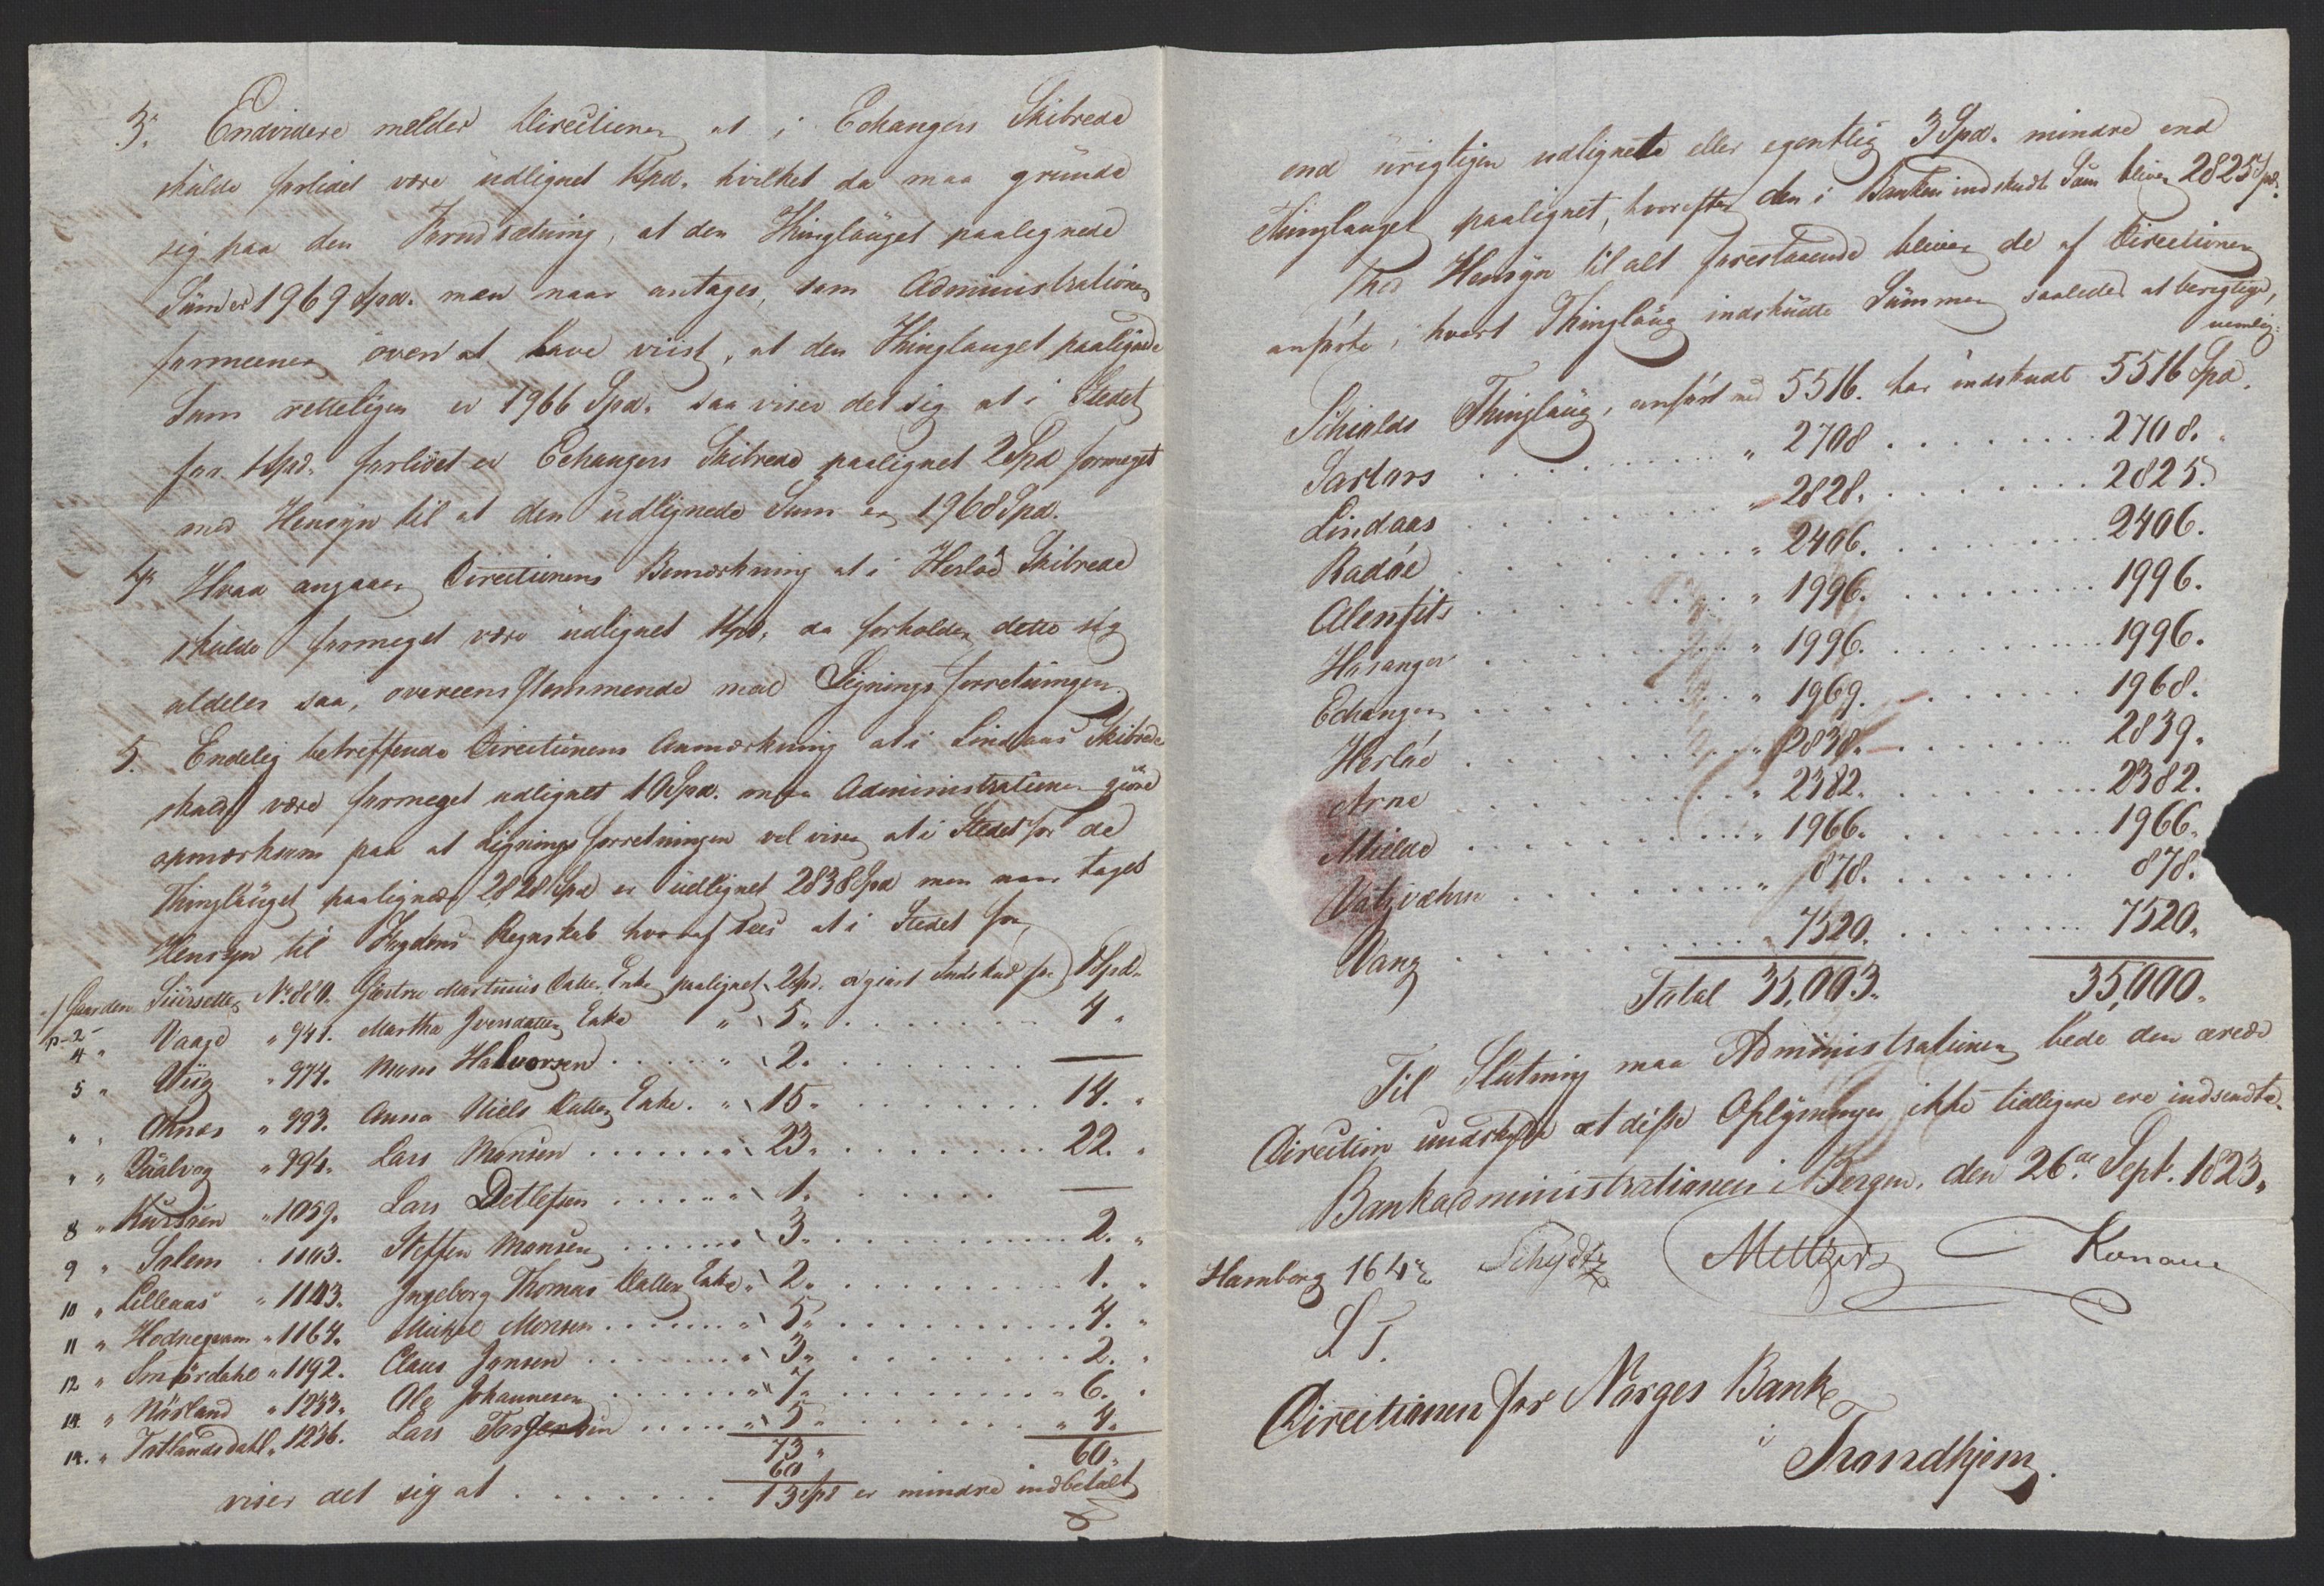 3. Endvidere melder Directionen at i Echangers Skibrede
skulde forlidet være udlignet 1 Spd. hvilket da maa grunde
sig paa den Forudsætning, at den Thinglauget paalignede
Sum er 1969 Spd. men naar antages, som Administrationen
formeener oven at have viist, at den Thinglauget paalignede
Sum retteligen er 1966 Spd. saa viser det sig at i Stedet
for 1 Spd. forlidet er Echangers Skibrede paalignet 2 Spd formeget
med Hensyn til at den udlignede Sum er 1968 Spd.
4. Hvad angaaer Directionens Bemærkning at i Herløe Skibrede
skulde formeget være udlignet 1 Spd. da forholder dette sig
aldeles saa, overeensstemmende med Ligningsforretningen.
5. Endelig betreffende Directionens Anmærkning at i Lindaas Skibrede
skulde være formeget udlignet 10 Spd. maa Administrationen giøre
opmærksom paa at Ligningsforretningen vel viser at i Stedet for de
Thinglauget paalignede 2828 Spd er udlignet 2838 Spd men naar tages
Hensyn til Fogdens Regnskab hvoraf sees at i Stedet for
Gaarden Siursetter No 880. Giertru Martinus Datter Enke paalignet 2 Spd. er giort Indskud for 1 Spd.
p. 2
4 " Vaage " 941. Martha Iversdatter Enke " 5 " . . . 4 "
5 " Uiig " 974. Mons Halvorsen . . . " 2. . . . —
" " Aknes " 993. Anna Niels Datter Enke. " 15 " . . . 14. "
" " Qualvog " 994. Lars Monsen . . . " 23. . . . 22. "
8 " Kursren " 1059. Lars Detlefsen . . . " 1. . . . —
9 " Solem . 1103. Steffen Monsen . . . " 3. . . . 2. "
10 " Lilleaas " 1143. Ingeborg Thomas Datter Enke " 2. . . . 1. "
11 " Hodneqvam " 1164. Mickel Monsen . . . " 5. . . . 4. "
12 " Smørdahl " 1192. Claus Jansen . . . " 3. . . . 2. "
14 " Røsland " 1233. Ole Johannesen . . . " 7. . . . 6. "
14. " Totlandsdahl " 1236. Lars Torgersen . . . " 5. . . . 4.
73 " 60 "
60
viser det sig at . . . 13 Spd er mindre indbetalt
end urigtigen udlignede eller egentlig 3 Spd. mindre end
Thinglauget paalignet, hvorefter den i Banken indskudte Sum bliver 2825 Spd.
Med Hensyn til alt forestaaende bliver de af Directionen
anførte, i hvert Thinglaug indskudte Summer saaledes at berigtige,
nemlig:
Schiolds Thinglaug, anført med 5516. har indskudt 5516 Spd.
Sartors . . . " 2708 . . . 2708. "
Lindaas . . . " 2828. . . . 2825.
Radøe . . . " 2406. . . . 2406.
Alenfits . . . " 1996. . . . 1996.
Hosanger . . . " 1996. . . . 1996.
Echanger . . . " 1969. . . . 1968.
Herløe . . . " 2838. . . . 2839.
Arne . . . " 2382. . . . 2382.
Mielde . . . " 1966. . . . 1966.
Vatsvæhrn . . . " 878. . . . 878.
Vang . . . " 7520. . . . 7520.
Total 35,003. 35,000.
Til Slutning maa Administrationen bede den ærede
Direction undskylde at disse Oplysninger ikke tidligere ere indsendte.
Bankadministrationen i Bergen, den 26de Sept. 1823.
Hamborg Schydtz Meltzer Konow
S T.
Directionen for Norges Bank
i
Trondhjem.